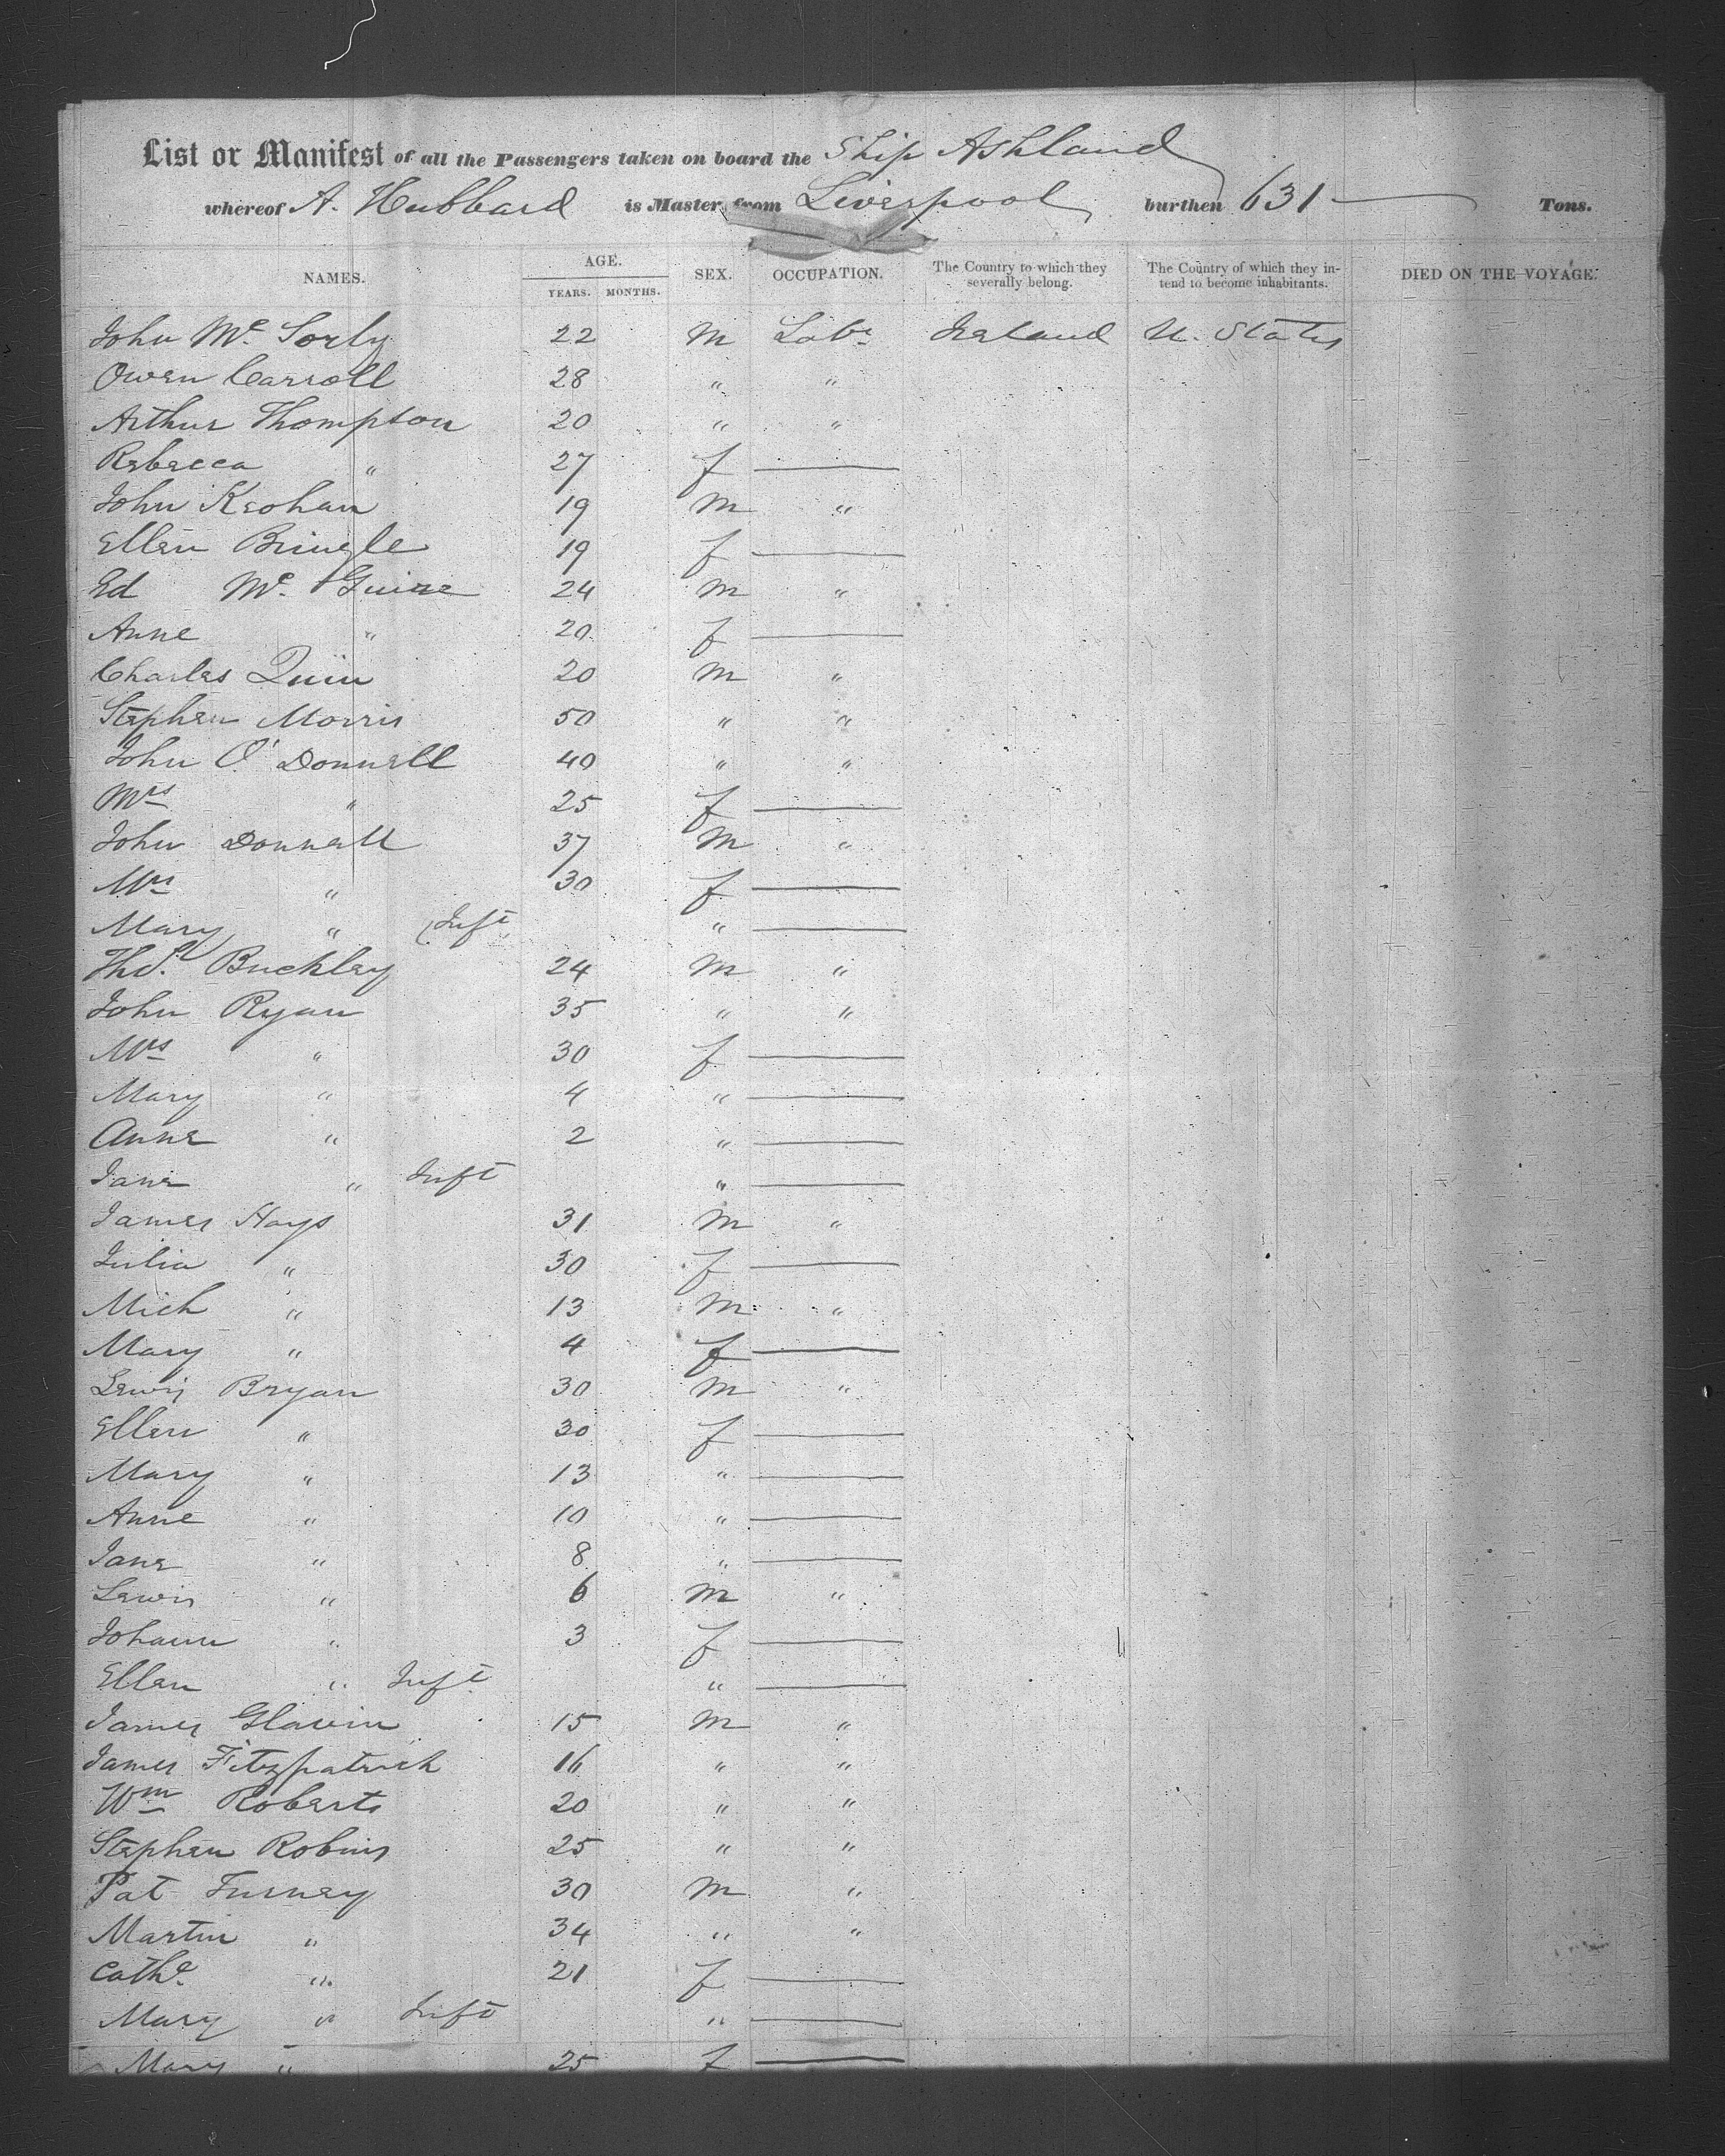 List or Manifest of all the Passengers taken on board the Ship Ashland
whereof A. Hubbard is Master, from Liverpool burthen 631 Tons.
NAMES. AGE. YEARS. MONTHS. SEX. OCCUPATION. The Country to which they severally belong. The Country of which they intend to become inhabitants. DIED ON THE VOYAGE.
John Mc. Sorly 22 M Labr Ireland U. States
Owen Carroll 28 " "
Arthur Thompson 20 " "
Rebecca " 27 f —
John Keohan 19 M "
Ellen Bringle 19 f —
Ed Mc. Guire 24 M "
Anne " 20 f —
Charles Quin 20 M "
Stephen Morris 50 " "
John O'Donnell 40 " "
Mrs " 25 f —
John Donnell 37 M "
Mrs " 30 f —
Mary " (Inft " —
Buckley 24 M "
John Ryan 35 " "
Mrs " 30 f —
Mary " 4 " —
Anne " 2 " —
Jane " Inft " —
James Hays 31 M "
Julia " 30 f —
Mich " 13 M "
Mary " 4 f —
Lewis Bryan 30 M "
Ellen " 30 f —
Mary " 13 " —
Anne " 10 " —
Jane " 8 " —
Lewis " 6 M "
Johann " 3 f —
Ellen " Inft " —
James Glavin 15 M "
James Fitzpatrick 16 " "
Wm Roberts 20 " "
Stephen Robins 25 " "
Pat Furney 30 M "
Martin " 34 " "
Cathe " 21 f —
Mary " Inft " —
Mary " 25 f —